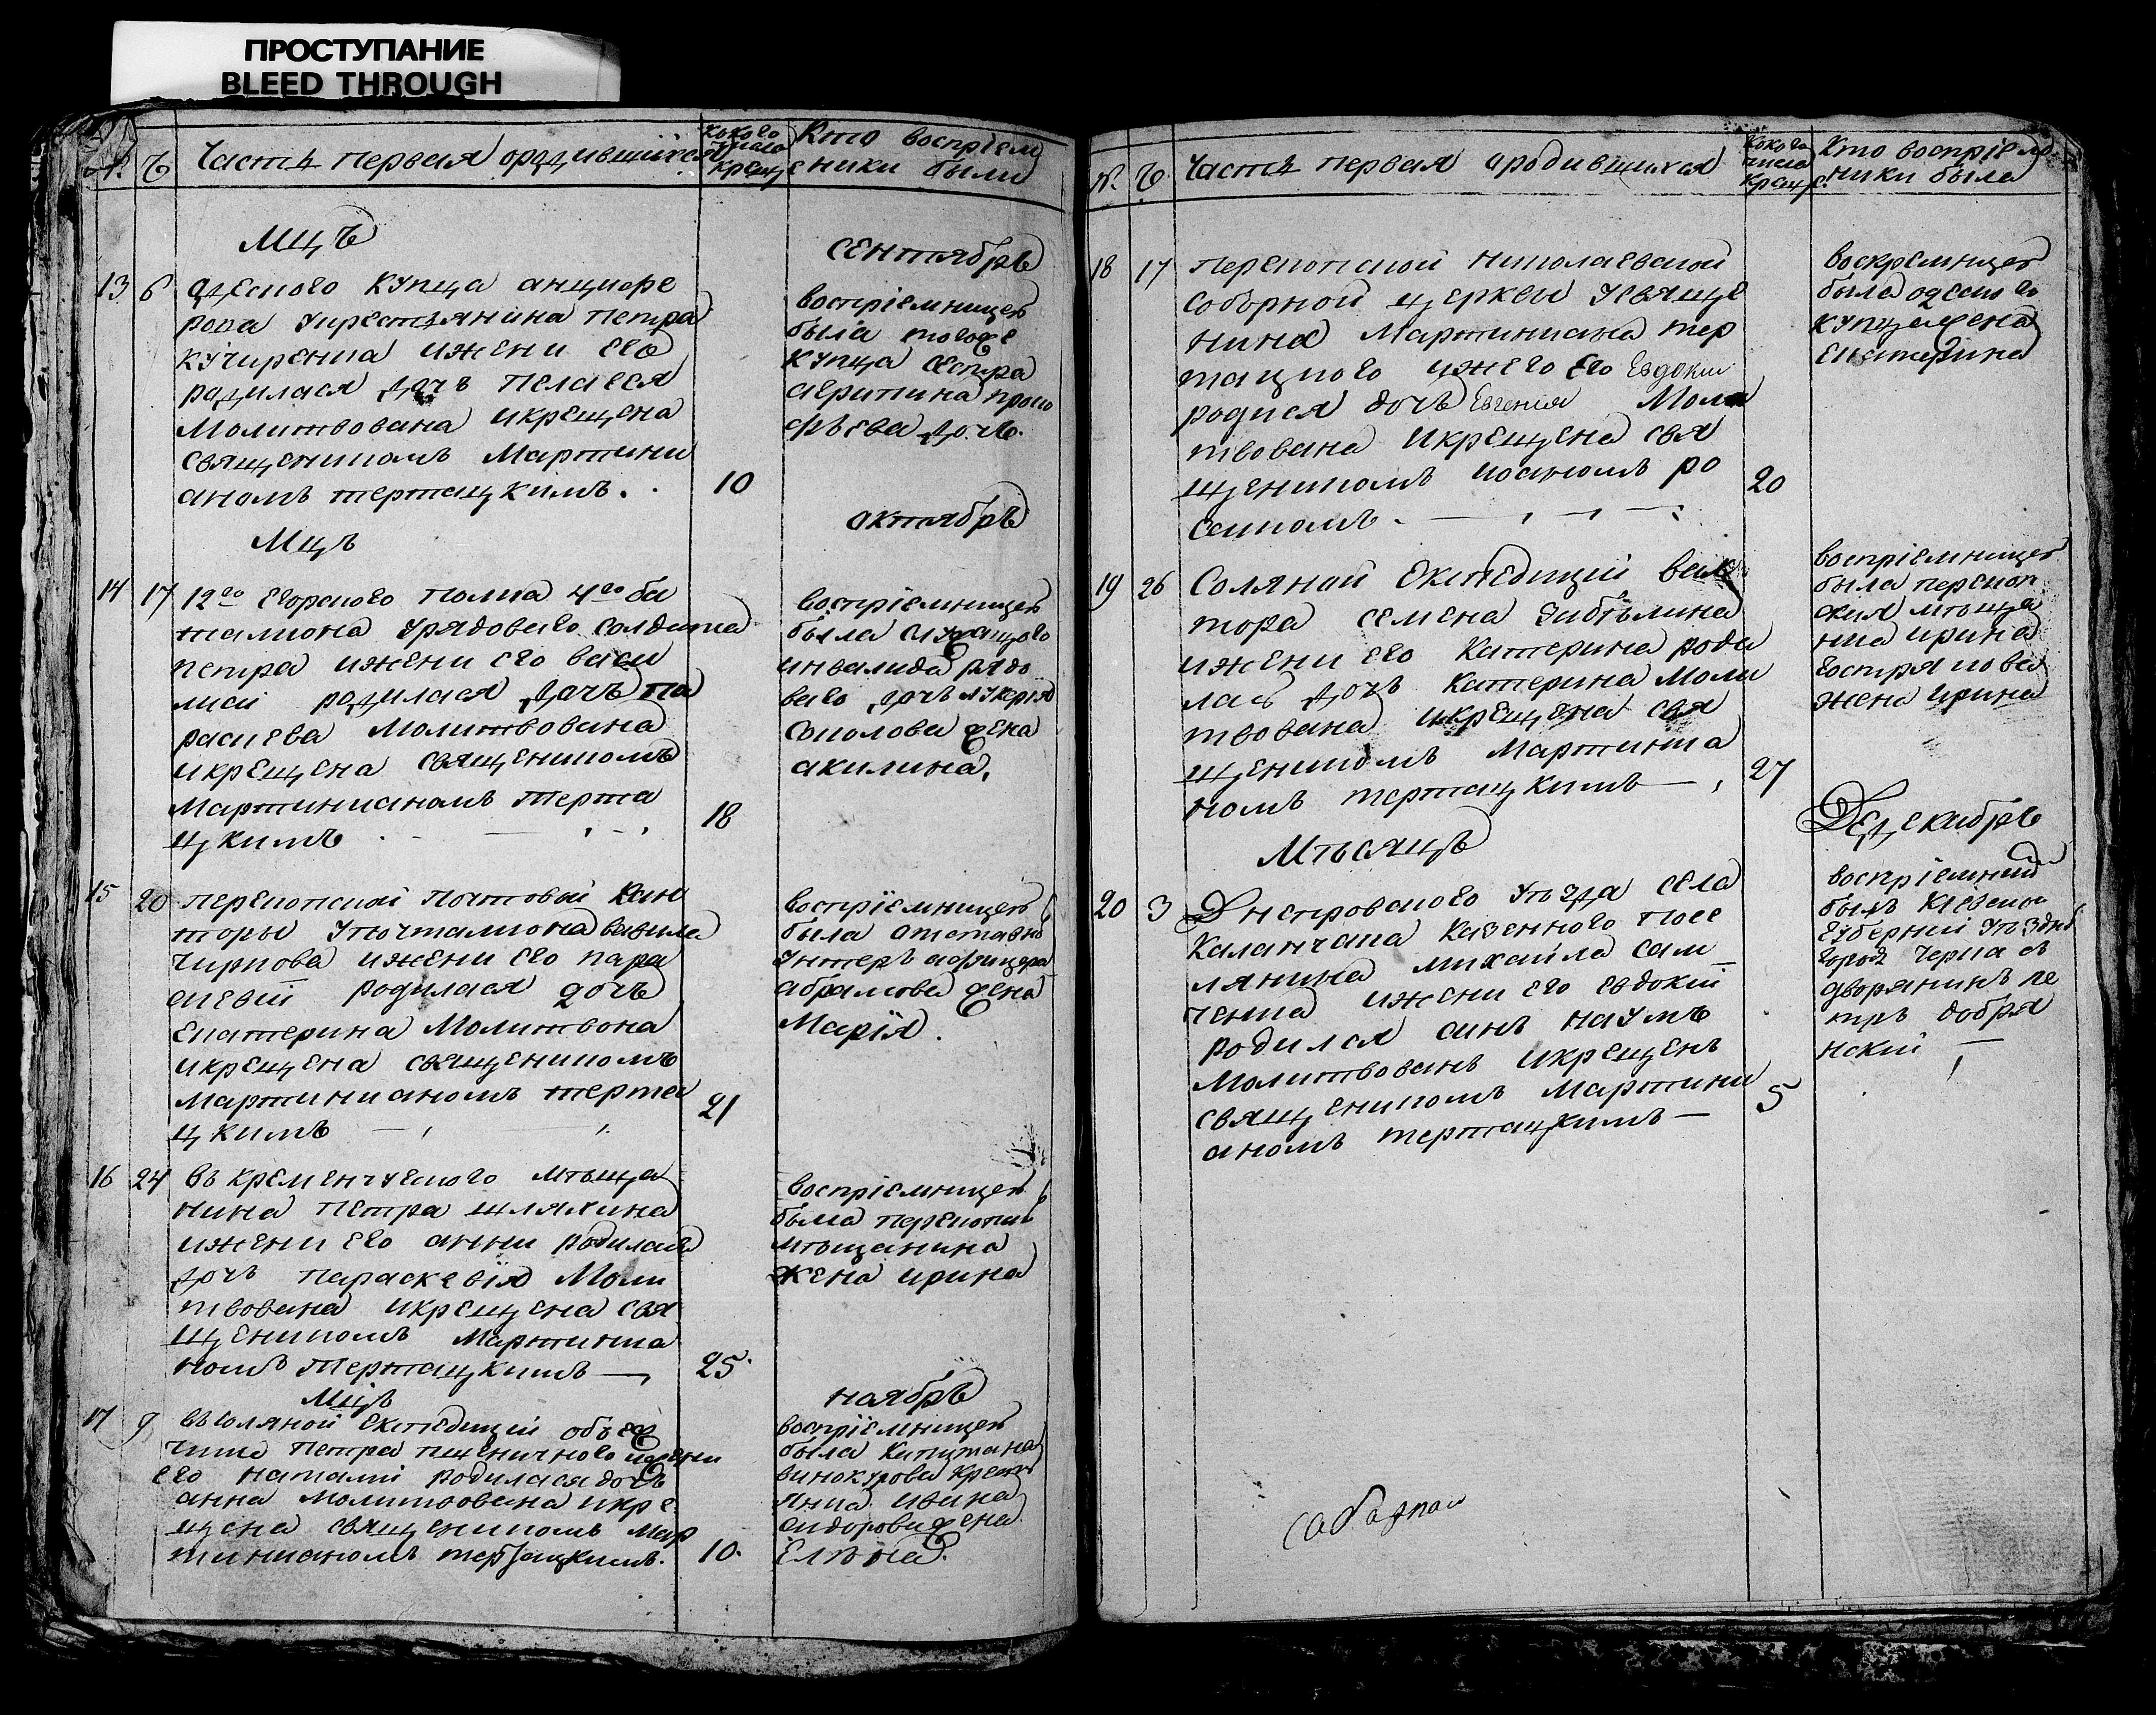 ПРОСТУПАНИЕ
BLEED THROUGH
№. Ч Часть первая ородившихся
Коково числа крещены
Кто воспріем
ники были
Мцъ
сентябрь
13 6 Одеского купца анциофе
рова укрестьянина петра
кучиренка ижени его
родилася дочь пелагея
Молитвована икрещена
священикомъ Мартини
аномъ тертацкимъ. 10
воспріемницею
была тогоже
купца сестра
дочь.
Мцъ
октябрь
14 17 12го егорского полка 4го ба
талиона урядоваго солдата
петра ижени его васи
лиси родилася дочь па
раскева Молитвована
икрещена священикомъ
Мартинианомъ терта
цкимъ 18
воспріемницею
была
инвалида рядо
ваго дочь лукерія
Соколова жена
акилина.
15 20 перекопской почтовой кан
торы упочталиона вавила
чиркова ижени его пара
скевіи родилася дочь
Екатерина Молитвона
икрещена священикомъ
мартинианомъ терта
цкимъ 21
воспріемницею
была отставно
унтеръ афицера
абрамова жена
Марія.
16 24 въ кременчугского мѣща
нина петра шляхина
ижени его анни родилась
дочь параскевія Моли
твована икрещена свя
щеникомъ Мартиниа
номъ тертацкимъ 25.
воспріемницею
была перекопс
мѣщанина
жена ирина
Мцъ
ноябрь
17 9 въсоляной експедиціи объез
чика петра пшеничного ижени
его наталіи родилася дочь
анна молитвована икре
щена священикомъ мар
тинианомъ тертацкимъ. 10.
воспріемницею
была капитана
винокурова крест
янка ивана
сидорова жена
Елена.
№. Ч Часть первая ародившихся
Коково числа креще.
Кто воспріем
ники была
18 17 перекопской николаевской
соборной церкви усвяще
ника Мартиниана тер
тацкого ижего его Евдокии
родися дочь Евгения Моли
твована икрещена свя
щеникомъ иоаномъ ро
скикомъ. 20
воскремницею
была одеского
купца жена
екатерина
19 26 Соляной експедиции вах
тора семена
ижени его катерина роди
лась дочь катерина Моли
твована икрещена свя
щеникомъ Мартиниа
номъ тертацкимъ 27
воспріемницею
была перекоп
ская мѣща
нка ирина
жена ирина
Мѣсяцъ
Децекабрь
20 3 Днепровского уѣзда села
Каланчака казенного посе
лянина михаила сам
ченка ижени его евдокіи
родился синъ наумъ
Молитвованъ икрещенъ
священикомъ Мартини
аномъ тертацкимъ 5
воспріемник
былъ киевской
губерніи уѣздно
город черкасъ
дворянинъ пе
тръ добря
нскій